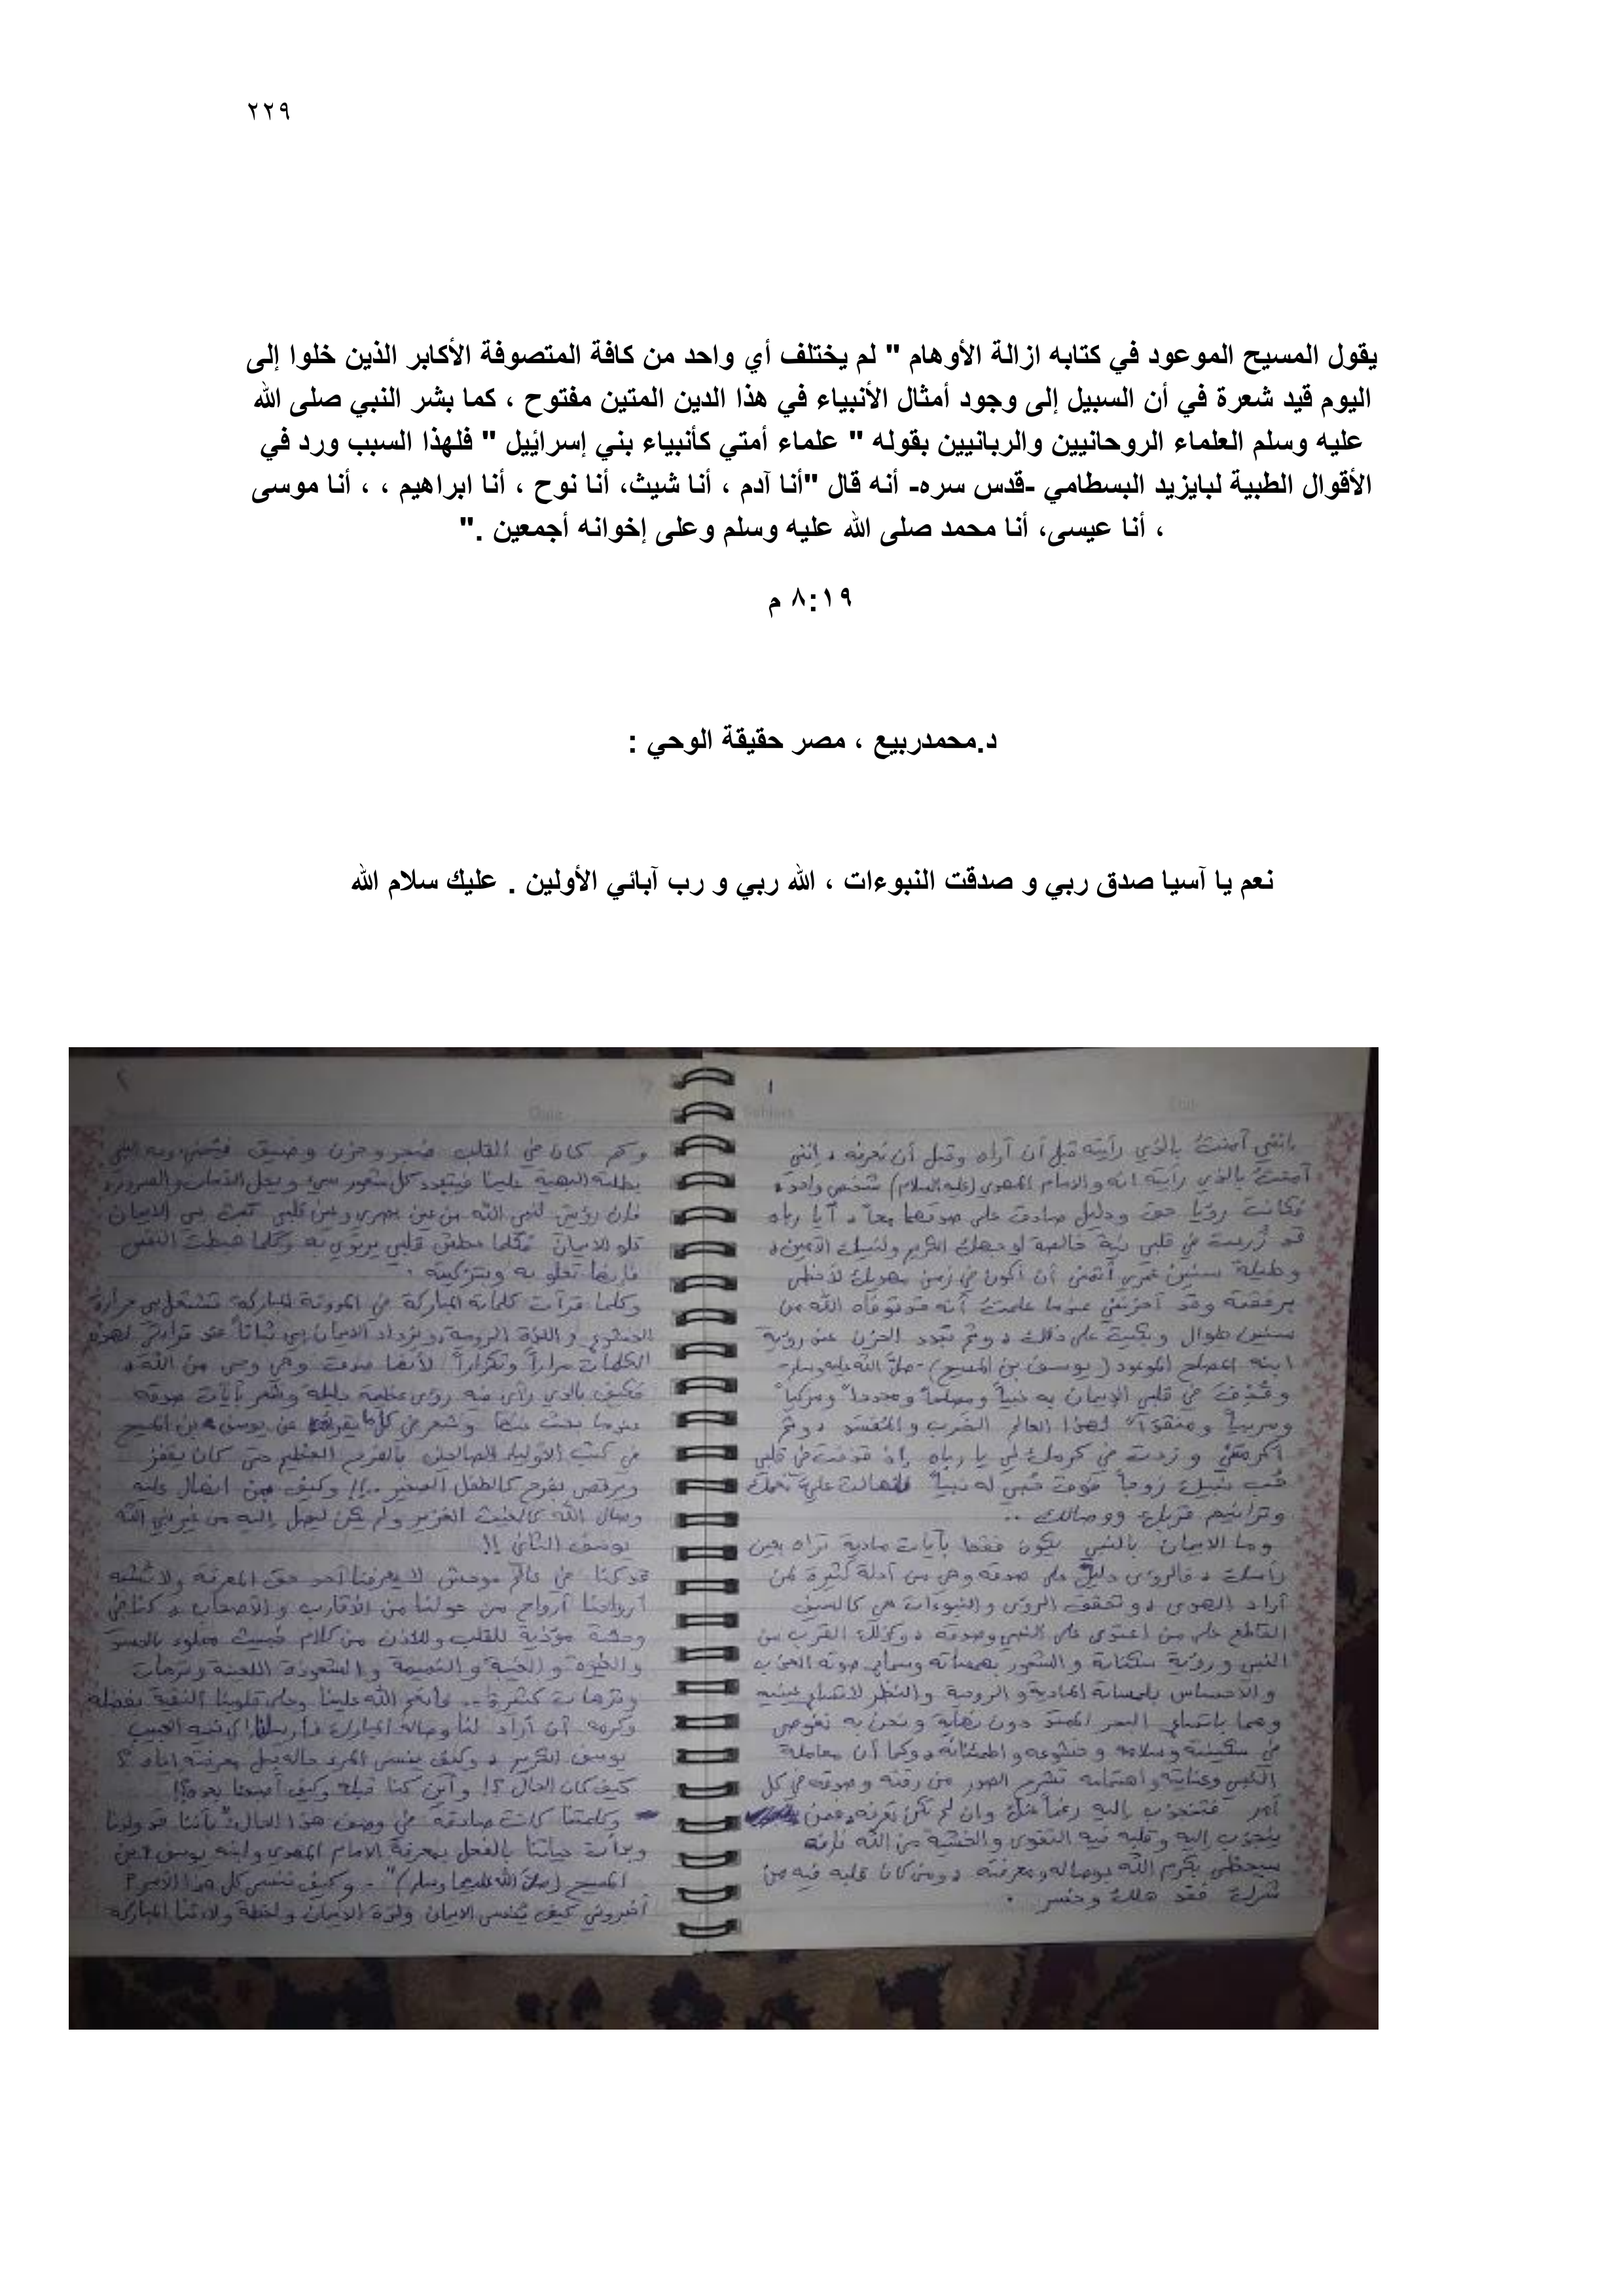 ٢٢٩
يقول المسيح الموعود في كتابه ازالة الأوهام " لم يختلف أي واحد من كافة المتصوفة الأكابر الذين خلوا إلى
اليوم قيد شعرة في أن السبيل إلى وجود أمثال الأنبياء في هذا الدين المتين مفتوح ، كما بشر النبي صلى الله
عليه وسلم العلماء الروحانيين والربانيين بقوله " علماء أمتي كأنبياء بني إسرائيل " فلهذا السبب ورد في
الأقوال الطيبة لبايزيد البسطامي -قدس سره- أنه قال "أنا آدم ، أنا شيث، أنا نوح ، أنا ابراهيم ، ، أنا موسى
، أنا عيسى، أنا محمد صلى الله عليه وسلم وعلى إخوانه أجمعين ."
٨:١٩ م
د.محمدربيع ، مصر حقيقة الوحي :
نعم يا آسيا صدق ربي و صدقت النبوءات ، الله ربي و رب آبائي الأولين . عليك سلام الله
١
إنني آمنت بالذي رأيته قبل أن أراه وقبل أن نعرفه ، إنني
آمنت بالذي رأيته انه والامام المهدي (عليه السلام) شخص واحد
فكانت رؤيا حق ودليل صادق على صدقهما معاً ، أيا رباه
قد زرعت في قلبي نية خالصة لوجهك الكريم ولنبيك الأمين ،
وطيلة سنين عمري أتمنى أن أكون في زمن مهديك لأحظى
برفقته وقد أحزنني عندما علمت أنه قد توفاه الله من
سنين طوال وبكيت على ذلك ، وثم تبدد الحزن عند رؤية
ابنه المصلح الموعود (يوسف بن المسيح) -صلى الله عليه وسلم-
وقذفت في قلبي الإيمان به نبياً ومصلحاً ومجدداً ومزكياً
ومربياً ومنقذاً لهذا العالم الخرب والمفسد ، وثم
أكرمتني وزدت في كرمك لي يا رباه إذ قذفت في قلبي
حب نبيك زوجاً فوق حبي له نبياً فانهالت علي نعمك
وما الايمان بالنبي يكون فقط بآيات مادية تراه بعين
رأسك ، فالرؤى دليل على صدقه وهي من أدلة كثيرة لمن
أراد الهدى ، وتحقق الرؤى والنبوءات هي كالسيف
القاطع على من اعتدى على النبي وصدقه ، وكذلك القرب من
النبي ورؤية سكناته والشعور بهمساته وسماع صوته العذب
والاحساس بلمساته المادية والروحية والنظر لاتساع عينيه
وهما باتساع البحر الممتد دون نهاية ونحن به نغوص
في سكينته وسلامه وخشوعه واطمئنانه ، وكما أن معاملة
النبي وعنايته واهتمامه تشرح الصدور من رقته وصدقه في كل
أمر فتنجذب إليه رغماً عنك وان لم تكن تعرفه ، فمن
ينجذب إليه وقلبه فيه التقوى والخشية من الله فإنه
سيحظى بكرم الله بوصاله ومعرفته ، ومن كان قلبه فيه من
شرك فقد هلك وخسر .
٢
وكم كان في القلب ضجر وحزن وضيق
بطلته البهية علينا فيتبدد كل شعور سيء
فإن رؤيتي لنبي الله من عين بصري وعين قلبي
فكلما عطش قلبي يرتوي به وكلما هبطت النفس
فإنها تعلو به وبتزكيته .
وكلما قرأت كلماته المباركة في المدونة المباركة تشتعل بي حرارة
الكلمات مراراً وتكراراً لأنها صدقت وهي وحي من الله
في كتب الأولياء الصالحين بالفرح العظيم حتى كان يقفز
ويرقص بفرح كالطفل الصغير ..!! وكيف من انهال عليه
وصال الله كالغيث الغزير ولم يكن ليصل إليه من غير نبي الله
يوسف الثاني !!
قد كنا في عالم موحش لا يعرفنا أحد حق المعرفة ولا تشبه
أرواحنا أرواح من حولنا من الأقارب والأصحاب ، كنا في
وحشة مؤذية للقلب وللأذن من كلام خبيث مملوء بالحسد
والغيرة والغيبة والنميمة
كثيرة .. فأنعم الله علينا وعلى قلوبنا النقية بفضله
وكرمه أن أراد لنا وصاله المبارك فأرسلنا إلى نبيه الحبيب
يوسف الكريم ، وكيف ينسى المرء حاله قبل معرفته إياه ؟
كيف كان الحال ؟! وأين كنا قبله وكيف أصبحنا بعده ؟!
وكلمتنا كانت صادقة في وصف هذا الحال : بأننا قد ولدنا
وبدأت حياتنا بالفعل بمعرفة الامام المهدي وابنه يوسف بن
المسيح (صلى الله عليهما وسلم)" .. وكيف ننسى كل هذا الأمر ؟
أخبروني كيف يُنسى الايمان ولذة الايمان ولحظة ولادتنا المباركة